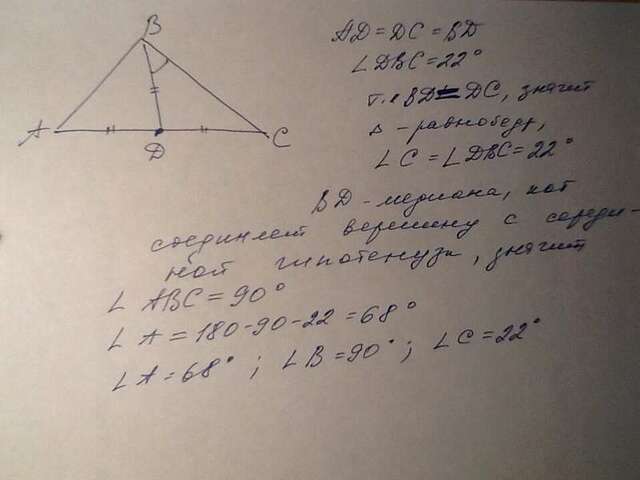 B
A
D
C
AD = DC = BD
∠DBC = 22°
т.к BD = DC, значит
Δ - равнобедр,
∠C = ∠DBC = 22°
BD - медиана, кот
соединяет вершину с середи-
ной гипотенузы, значит
∠ABC = 90°
∠A = 180 - 90 - 22 = 68°
∠A = 68° ; ∠B = 90° ; ∠C = 22°